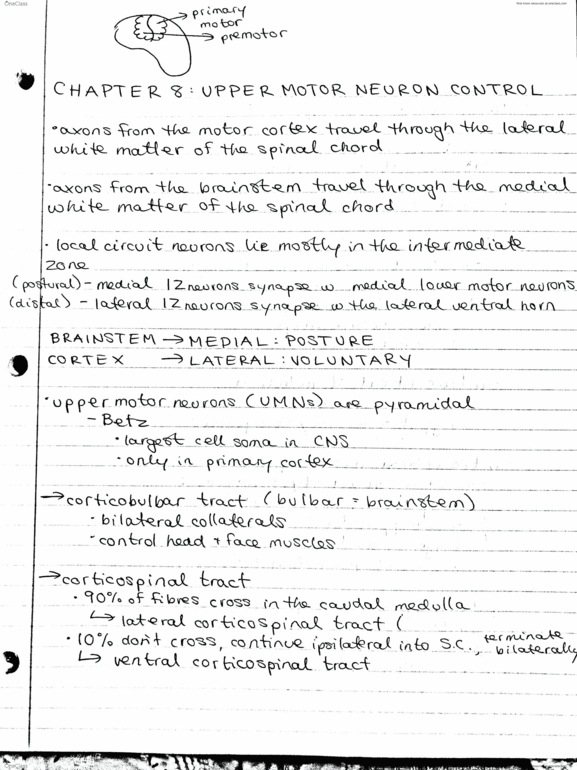 OneClass
primary
motor
premotor
CHAPTER 8: UPPER MOTOR NEURON CONTROL
•axons from the motor cortex travel through the lateral
white matter of the spinal chord
•axons from the brainstem travel through the medial
white matter of the spinal chord
• local circuit neurons lie mostly in the intermediate
zone
(postural) - medial IZ neurons synapse w medial lower motor neurons
(distal) - lateral IZ neurons synapse w the lateral ventral horn
BRAINSTEM → MEDIAL: POSTURE
CORTEX → LATERAL: VOLUNTARY
•upper motor neurons (UMNs) are pyramidal
- Betz
•largest cell soma in CNS
•only in primary cortex
→corticobulbar tract (bulbar = brainstem)
• bilateral collaterals
•control head + face muscles
→corticospinal tract
• 90% of fibres cross in the caudal medulla
↳ lateral corticospinal tract (
• 10% don't cross, continue ipsilateral into S.C., terminate bilaterally
↳ ventral corticospinal tract